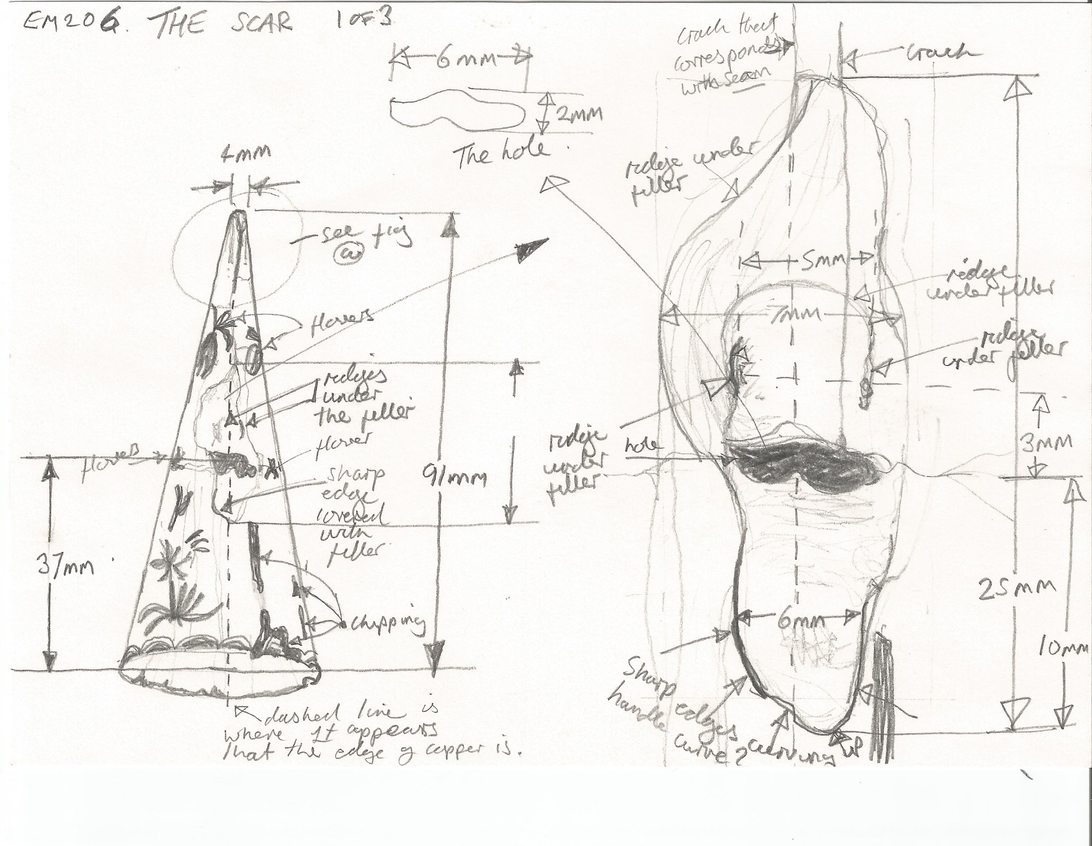 EM206. THE SCAR 1 OF 3
6mm
2mm
The hole.
4mm
see fig
a
flowers
ridges
under
the filler
flower
flowers
sharp
edge
covered
with
filler
91mm
37mm
chipping
dashed line is
where it appears
that the edge of copper is.
crack that
corresponds
with seam
crack
ridge under
filler
5mm
ridge
under filler
7mm
ridge
under filler
ridge
under
filler
hole
3mm
25mm
10mm
6mm
sharp edges
handle curve? curving up